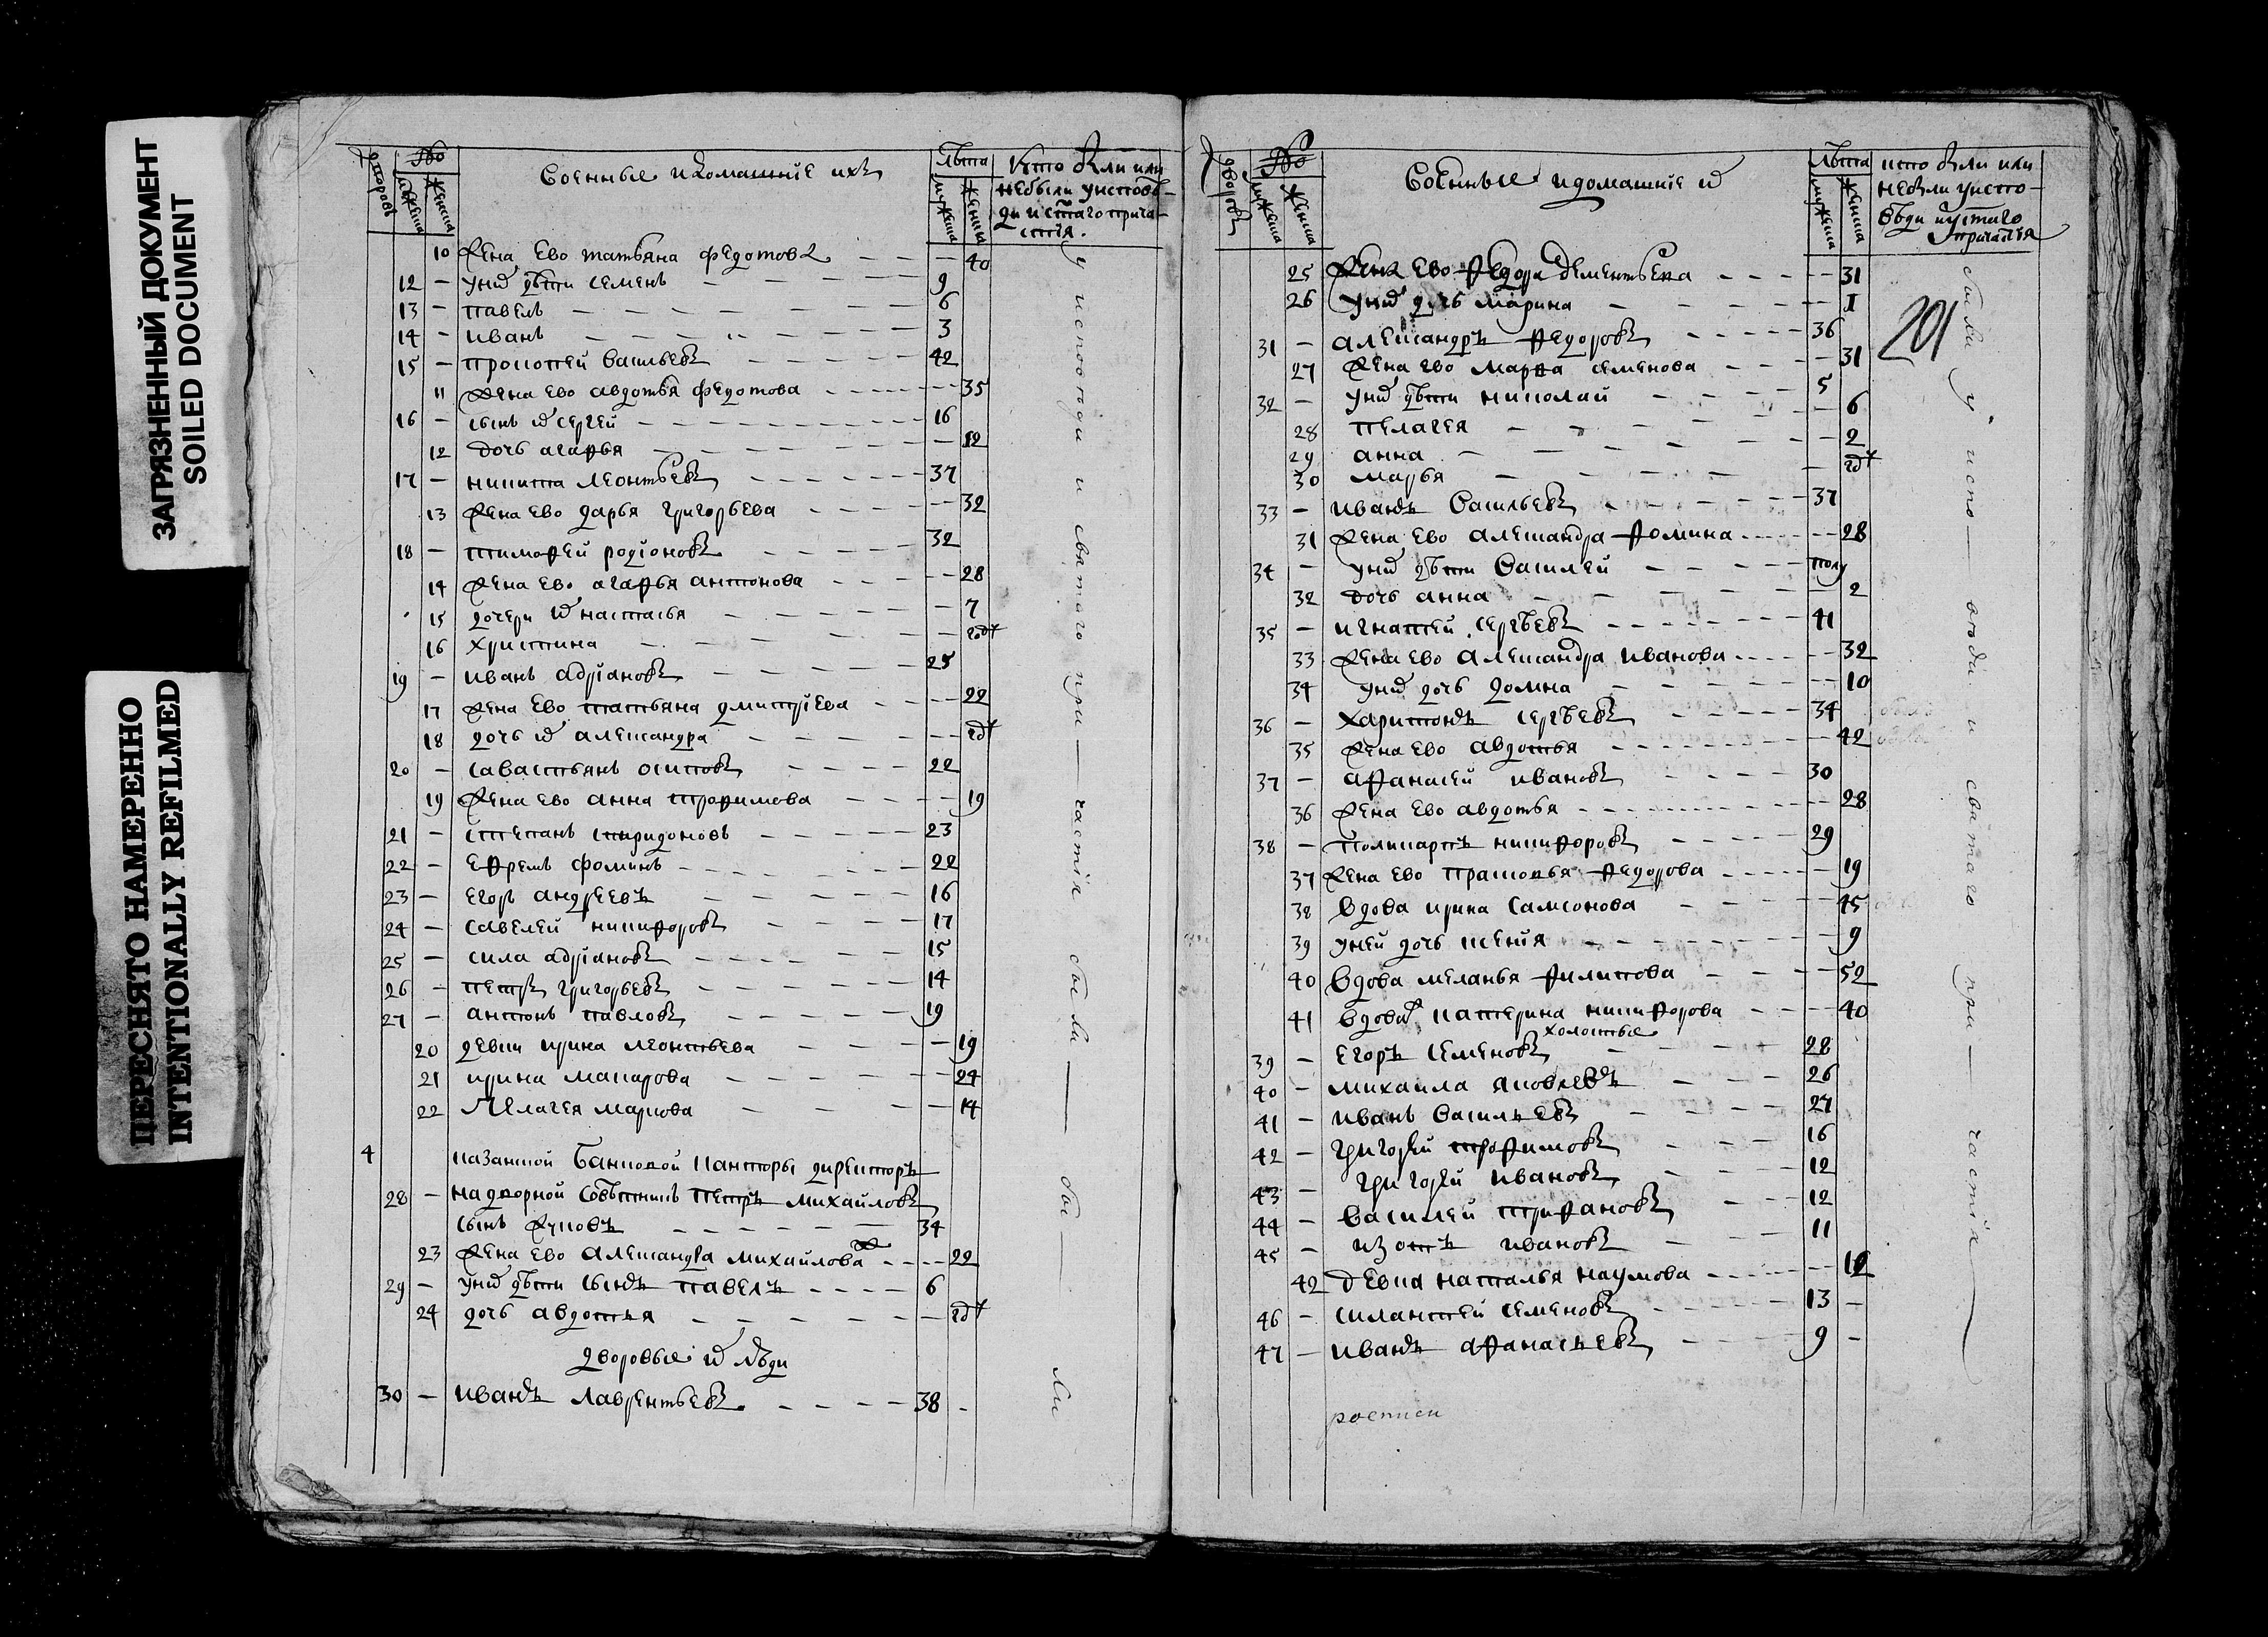 ЗАГРЯЗНЕННЫЙ ДОКУМЕНТ
SOILED DOCUMENT
ПЕРЕСНЯТО НАМЕРЕННО
INTENTIONALLY REFILMED
дворовъ
№
мужеска
женска
Военные и домашние ихъ
Лѣта
мужеска
женска
Кто были или
небыли уисповѣ-
ди и стаго прича-
стія.
10 жена ево татьяна федотова 40
12 — униⷯ дѣти семенъ 9
13 — павелъ 6
14 — иванъ 3
15 — прокопей васильевъ 42
11 жена ево авдотья федотова 35
16 — сынъ иⷯ сергей 16
12 дочь агафья 12
17 — никита леонтьевъ 37
13 жена ево дарья григорьева 32
18 — тимофей родіоновъ 32
14 жена ево агафья антонова 28
15 дочери иⷯ настасья 7
16 христина годъ
19 — иванъ адріановъ 25
17 жена ево татьяна дмитріева 22
18 дочь иⷯ александра годъ
20 — савастьянъ осиповъ 22
19 жена ево анна трофимова 19
21 — степанъ спиридоновъ 23
22 — ефремъ фоминъ 22
23 — егоръ андреевъ 16
24 — савелей никифоровъ 17
25 — сила адріановъ 15
26 — петръ григорьевъ 14
27 — антонъ павловъ 19
20 девки ирина леонтьева 19
21 ирина макарова 24
22 пелагея маркова 14
4 казанской банковой канторы директоръ
28 — надворной совѣтникъ петръ михайловъ
сынъ жуковъ 34
23 жена ево александра михайлова 22
29 — униⷯ дѣти сынъ павелъ 6
24 дочь авдотья годъ
дворовые иⷯ люди
30 — иванъ лаврентьевъ 38
у исповѣди и святаго при — частія были — бы — ли
дворовъ
№
мужеска
женска
Военные и домашние иⷯ
Лѣта
мужеска
женска
кто были или
небыли уиспо-
вѣди и стаго
причастія
201
25 жена ево федора дементьева 31
26 униⷯ дочь марина 1
31 — александръ федоровъ 36
27 жена ево марфа семенова 31
32 — униⷯ дѣти николай 5
28 пелагея 6
29 анна 2
30 марья годъ
33 — иванъ васильевъ 37
31 жена ево александра фомина 28
34 — униⷯ дѣти василей полу
32 дочь анна 2
35 — игнатей сергѣевъ 41
33 жена ево александра иванова 32
34 униⷯ дочь домна 10
36 — харитонъ сергѣевъ 34
35 жена ево авдотья 42
37 — афанасей ивановъ 30
36 жена ево авдотья 28
38 — поликарпъ никифоровъ 29
37 жена ево прасковья федорова 19
38 вдова ирина самсонова 45
39 уней дочь ксенія 9
40 вдова меланья филипова 52
41 вдова катерина никифорова 40
холостые
39 — егоръ семеновъ 28
40 — михаила яковлевъ 26
41 — иванъ васильевъ 27
42 — григорей трофимовъ 16
43 — григорей ивановъ 12
44 — василей трифановъ 12
45 — изотъ ивановъ 11
42 девка наталья наумова 12
46 — силантей семеновъ 13 —
47 — иванъ афанасьевъ 9 —
были у испо — вѣди и святаго при — частія
росписи